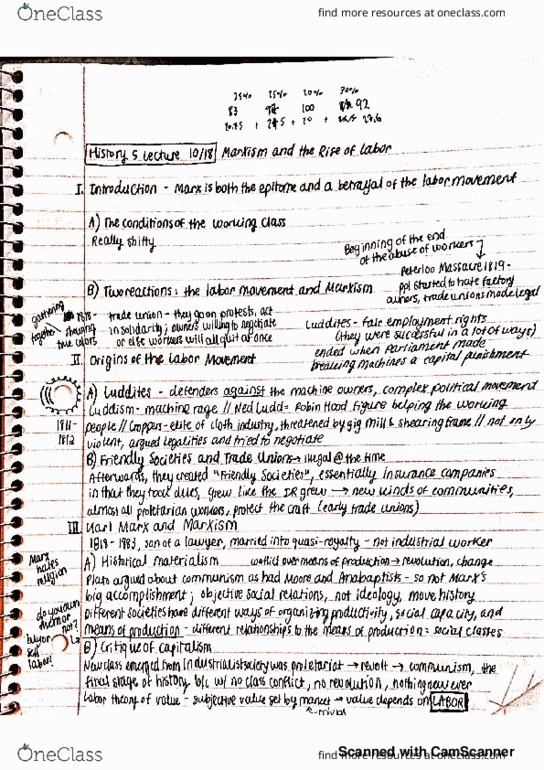 OneClass
find more resources at oneclass.com
25% 25% 20% 30%
83 100 92
History 5 Lecture 10/18 Marxism and the Rise of Labor
I. Introduction - Marx is both the epitome and a betrayal of the labor movement
A) The conditions of the working class
Really shitty
Beginning of the end
of the abuse of workers
Peterloo Massacre 1819 -
ppl started to hate factory
owners, trade unions made legal
B) Two reactions: the labor movement and Marxism
gathering
together
showing
true colors
trade union - they go on protests, act
in solidarity; owners willing to negotiate
or else workers will all quit at once
Luddites - fair employment rights
(they were successful in a lot of ways)
ended when Parliament made
breaking machines a capital punishment
II. Origins of the Labor Movement
1811-
1812
A) Luddites - defenders against the machine owners, complex political movement
Luddism - machine rage // Ned Ludd = Robin Hood figure helping the working
people // Croppers - elite of cloth industry, threatened by gig mill & shearing frame // not only
violent, argued legalities and tried to negotiate
B) Friendly Societies and Trade Unions → illegal @ the time
Afterwards, they created "Friendly Societies", essentially insurance companies
in that they took dues, grew like the IR grew → new kinds of communities,
almost all proletarian workers, protect the craft (early trade unions)
III. Karl Marx and Marxism
1818 - 1883, son of a lawyer, married into quasi-royalty - not industrial worker
Marx
hates
religion
A) Historical materialism conflict over means of production → revolution, change
Plato argued about communism as had Moore and Anabaptists - so not Marx's
big accomplishment; objective social relations, not ideology, move history
do you own
them or
not?
buy or
sell
labor?
Different societies have different ways of organizing productivity, social capacity, and
means of production - different relationships to the means of production = social classes
B) Critique of capitalism
New class emerged from Industrialist society was proletariat → revolt → communism, the
final stage of history b/c w/ no class conflict, no revolution, nothing new ever
Labor theory of value - subjective value set by market → value depends on LABOR
OneClass
find more resources at oneclass.com
Scanned with CamScanner